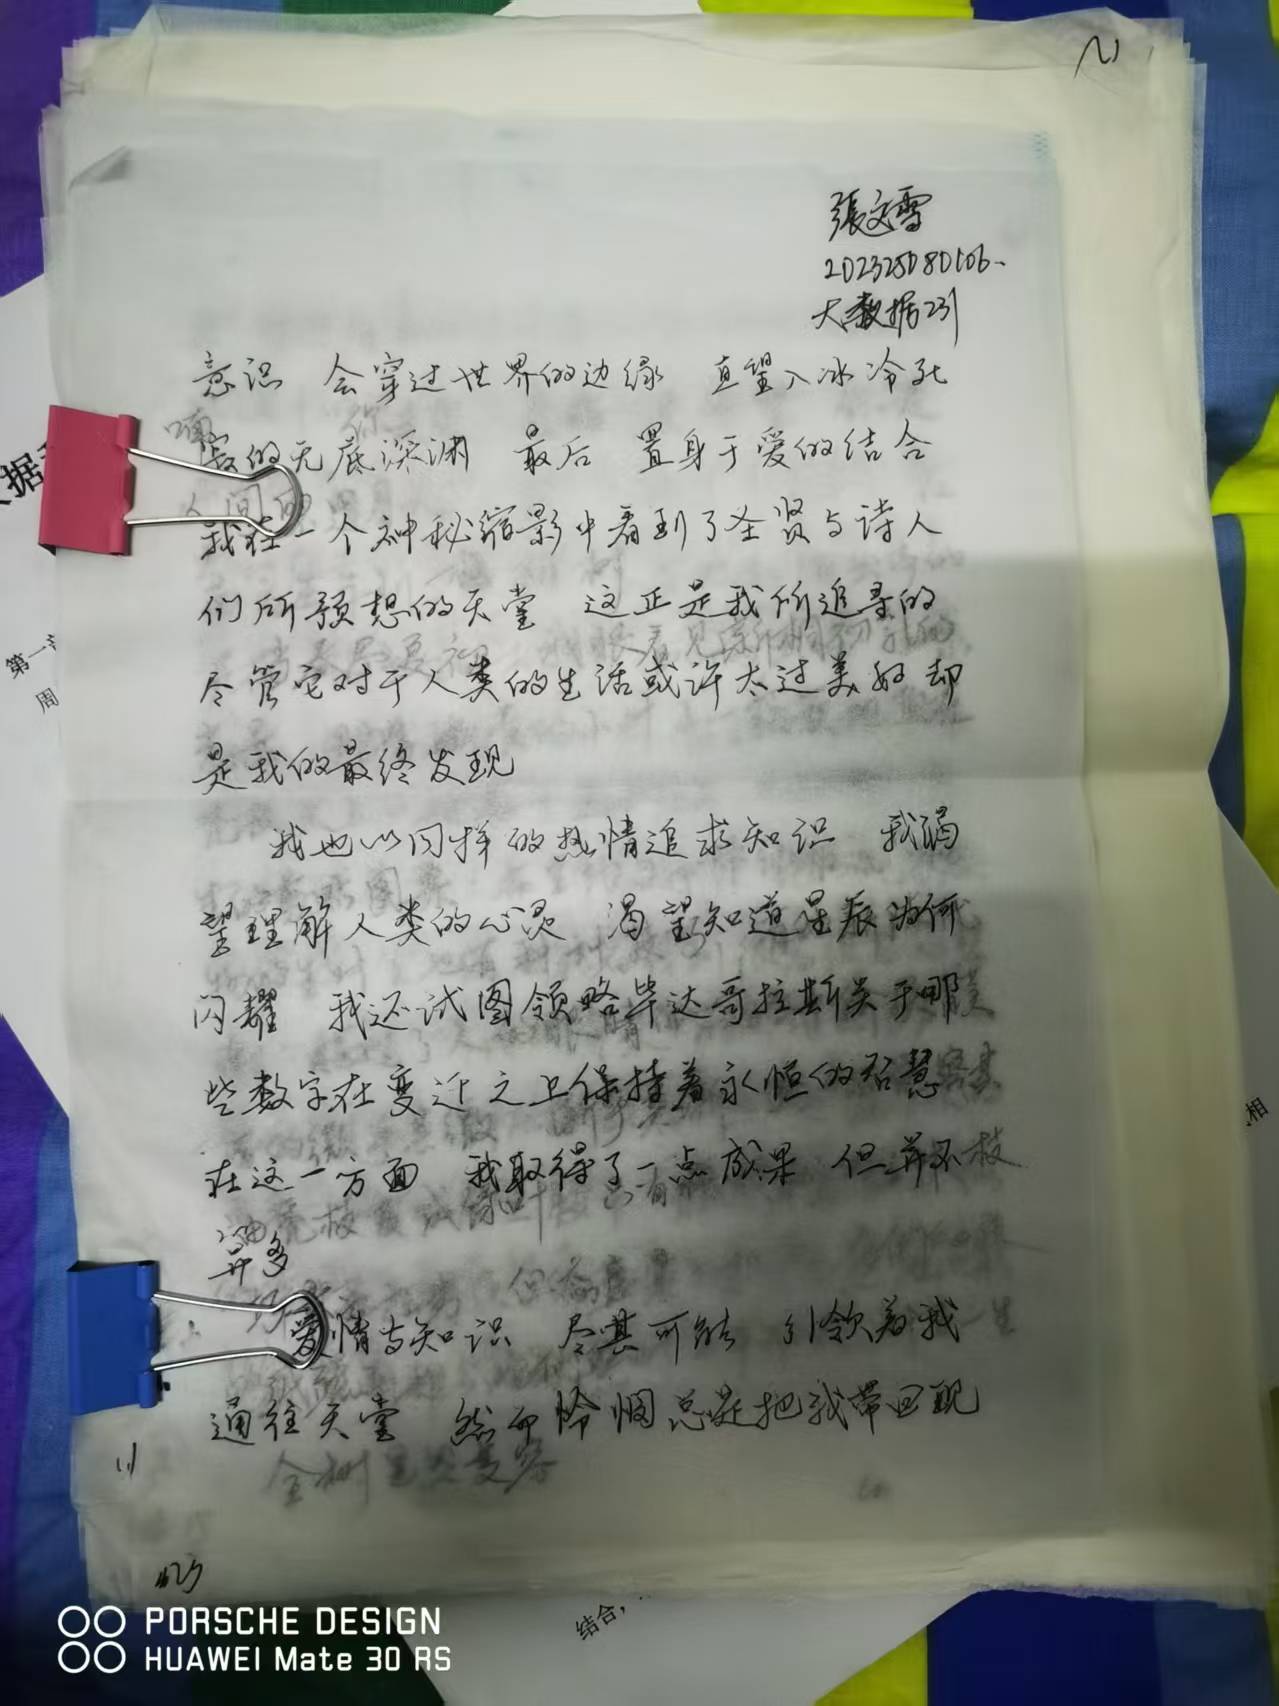 張文雪
202325080106.
大数据231
意识 会穿过世界的边缘 直望入冰冷死
寂的无底深渊 最后 置身于爱的结合
我在一个神秘缩影中看到了圣贤与诗人
们所预想的天堂 这正是我所追寻的
尽管它对于人类的生活或许太过美好却
是我的最终发现
我也以同样的热情追求知识 我渴
望理解人类的心灵 渴望知道星辰为何
闪耀 我还试图领略毕达哥拉斯关于那
些数字在变迁之上保持着永恒的智慧
在这一方面 我取得了一点成果 但并不
算多
爱情与知识 尽其可能 引领着我
通往天堂 然而怜悯总是把我带回现
据
第一
周
相
结合，
PORSCHE DESIGN
HUAWEI Mate 30 RS